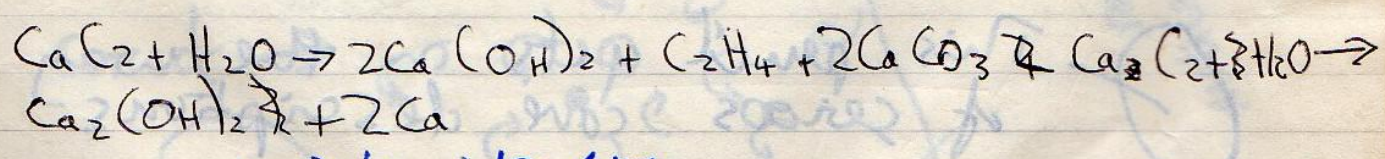 CaC2 + H2O → 2Ca(OH)2 + C2H4 + 2CaCO3 Ca2C2+3H2O→
Ca2(OH)2 + 2Ca